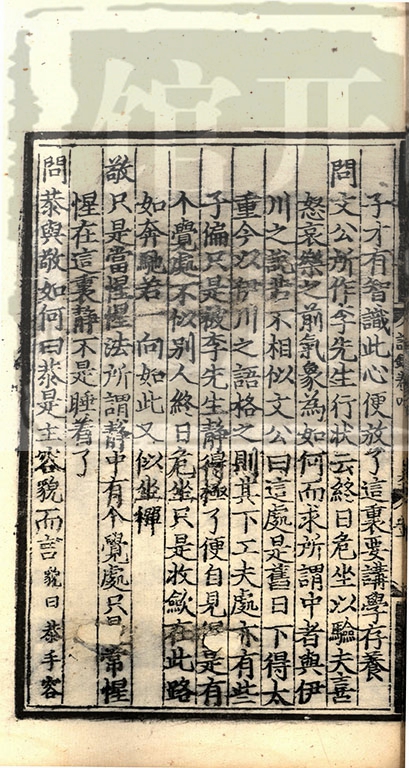 子才有智識此心便放了這裏要講學存養
問文公所作李先生行状云終日危坐以驗夫喜
怒哀樂之前氣象為如何而求所謂中者與伊
川之說若不相似文公曰這處是舊日下得太
重今以伊川之語格之則其下工夫處亦有些
子偏只是被李先生静得極了便自見得是有
个覺處不似別人終日危坐只是收斂在此路
如奔馳若一向如此又似坐禪
敬只是當惺惺法所謂静中有个覺處只是常惺
惺在這裏静不是睡着了
問恭與敬如何曰恭是主容貌而言貌曰恭手容